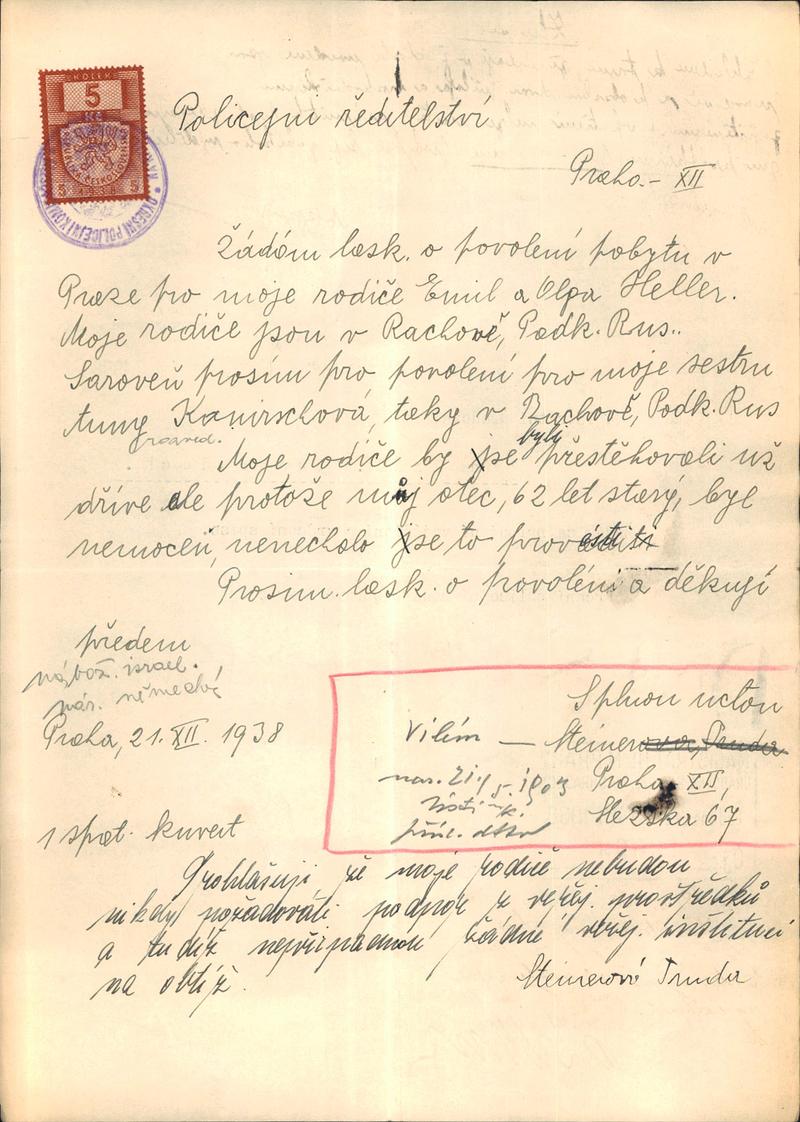 KOLEK
5
Kč
5 5
OKRESNÍ POLICEJNÍ KOM
Policejni ředitelství
Praha - XII
Žádám lask. o povolení pobytu v
Praze pro moje rodiče Emil a Olga Heller.
Moje rodiče jsou v Rachově, Podk. Rus..
Saroveň prosím pro povolení pro moje sestru
Kamirschová, taky v Rachově, Podk. Rus
Moje rodiče by se byli přestěhovali už
dříve ale protože můj otec, 62 let starý, byl
nemocen, nenechalo se to provésti
Prosim lask. o povoléni a děkuji
předem
nábož. israel.
nár. německé
Praha, 21. XII. 1938
S plnou uctou
Vilím — Steinerova, Truda
nar. 21/5. 1903 Praha XII,
Slezska 67
1 spat. kuvert
Prohlašuji že moje rodiče nebudou
nikdy požadovati podpor z veřej. prostředků
a tudíž nepřipadnou žádné veřej. instituci
na obtíž.
Steinerová Truda